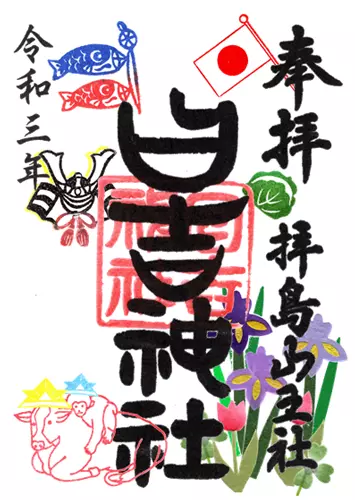 奉拝
拝島山王社
日吉神社
令和三年